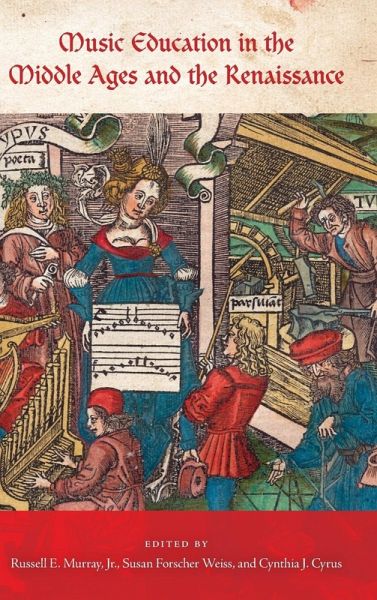 Music Education in the
Middle Ages and the Renaissance
YPUS
M
poeta
TV
parsutat
EDITED BY
Russell E. Murray, Jr., Susan Forscher Weiss, and Cynthia J. Cyrus